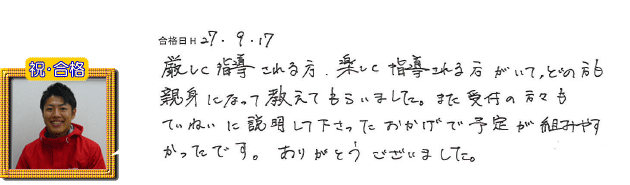 祝・合格
合格日H 27.9.17
厳しく指導される方、楽しく指導される方がいて、どの方も
親身になって教えてもらいました。また受付の方々も
ていねいに説明して下さったおかげで予定が組みやす
かったです。ありがとうございました。